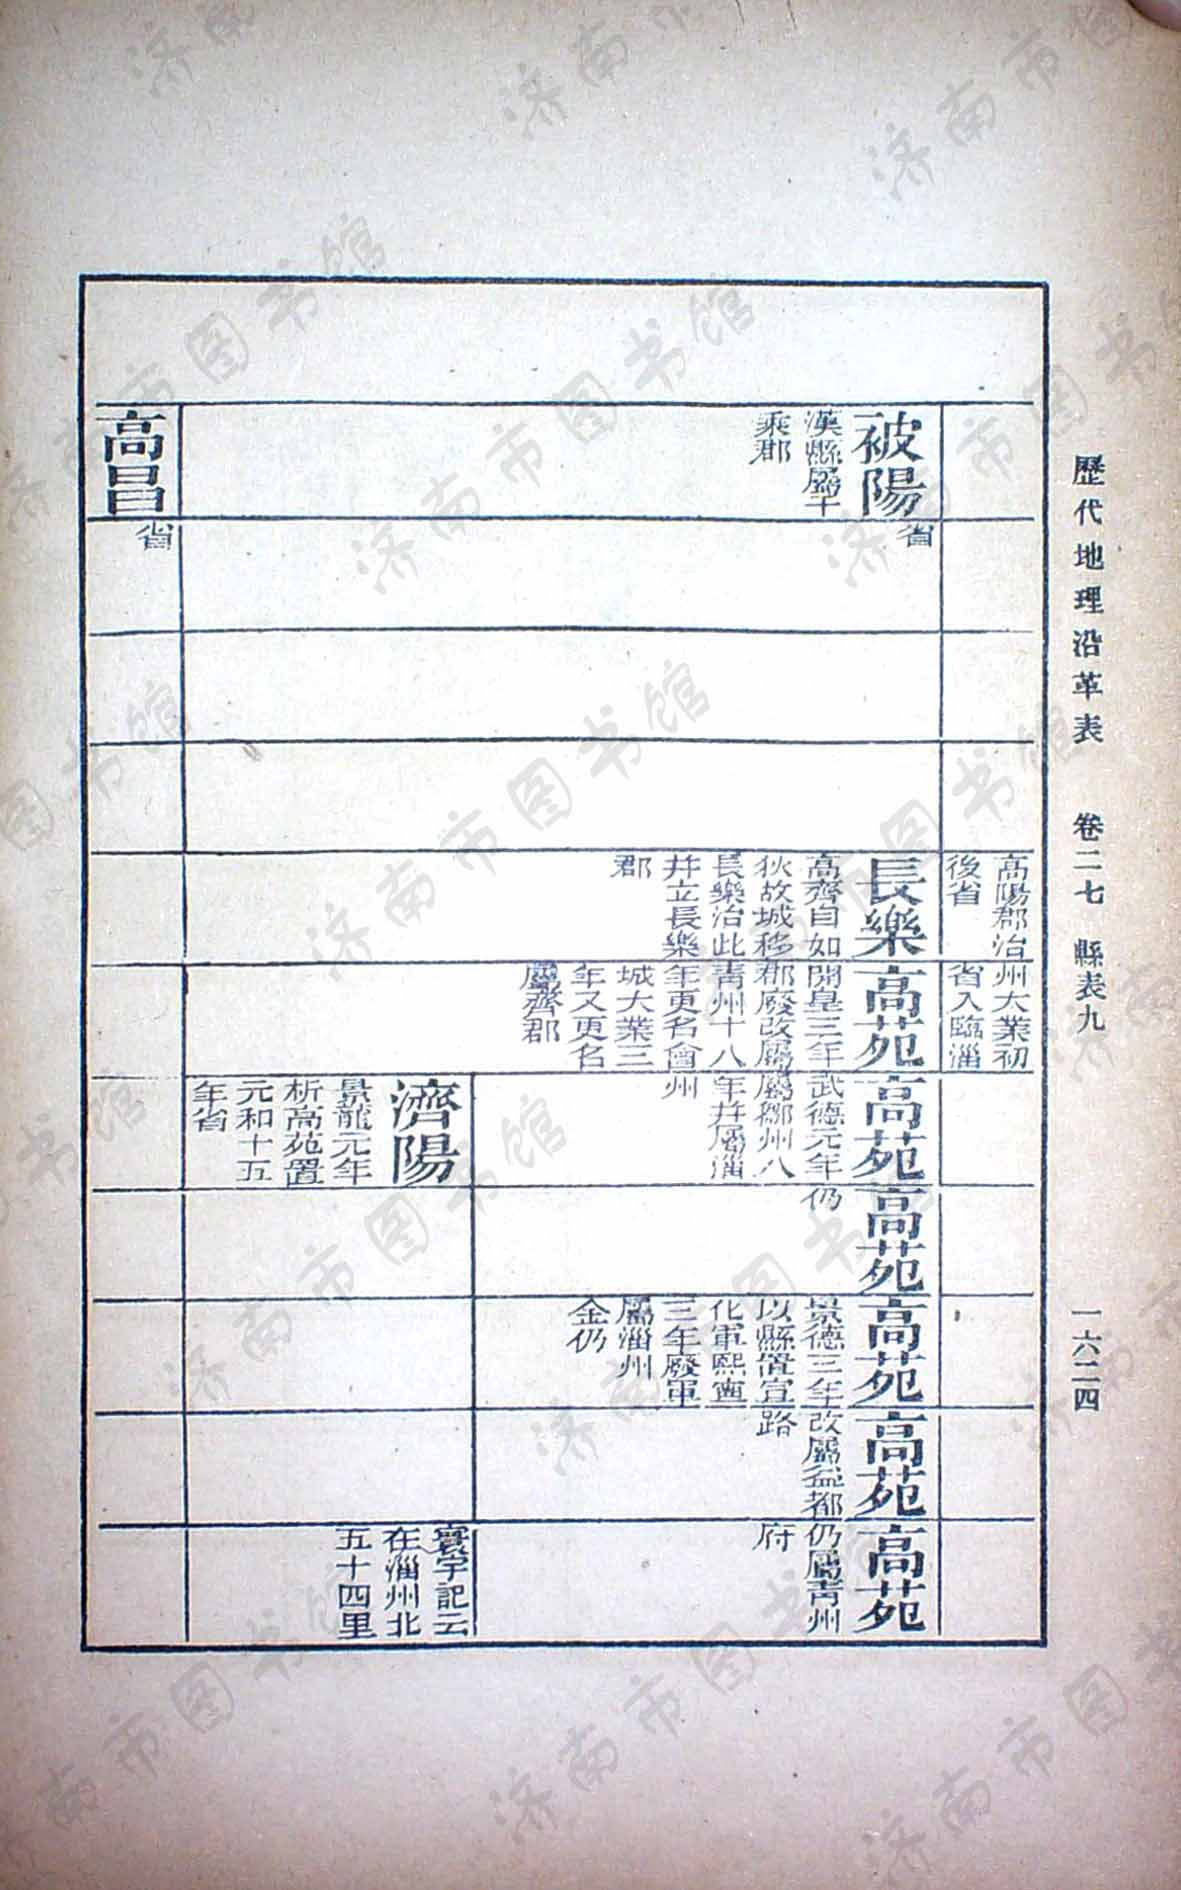 歷代地理沿革表 卷二七 縣表九 一六二四
高陽郡治
後省
州大業初
省入臨淄
被陽
漢縣屬千
乘郡
省
長樂
高齊自如
狄故城移
長樂治此
幷立長樂
郡
高苑
開皇三年
郡廢改屬
靑州十八
年更名會
城大業三
年又更名
屬齊郡
高苑
武德元年
屬鄒州八
年幷屬淄
州
高苑
仍
高苑
景德三年
以縣置宣
化軍熙寧
三年廢軍
屬淄州
金仍
高苑
改屬益都
路
高苑
仍屬靑州
府
濟陽
景龍元年
析高苑置
元和十五
年省
寰宇記云
在淄州北
五十四里
高昌
省
济南市图书馆